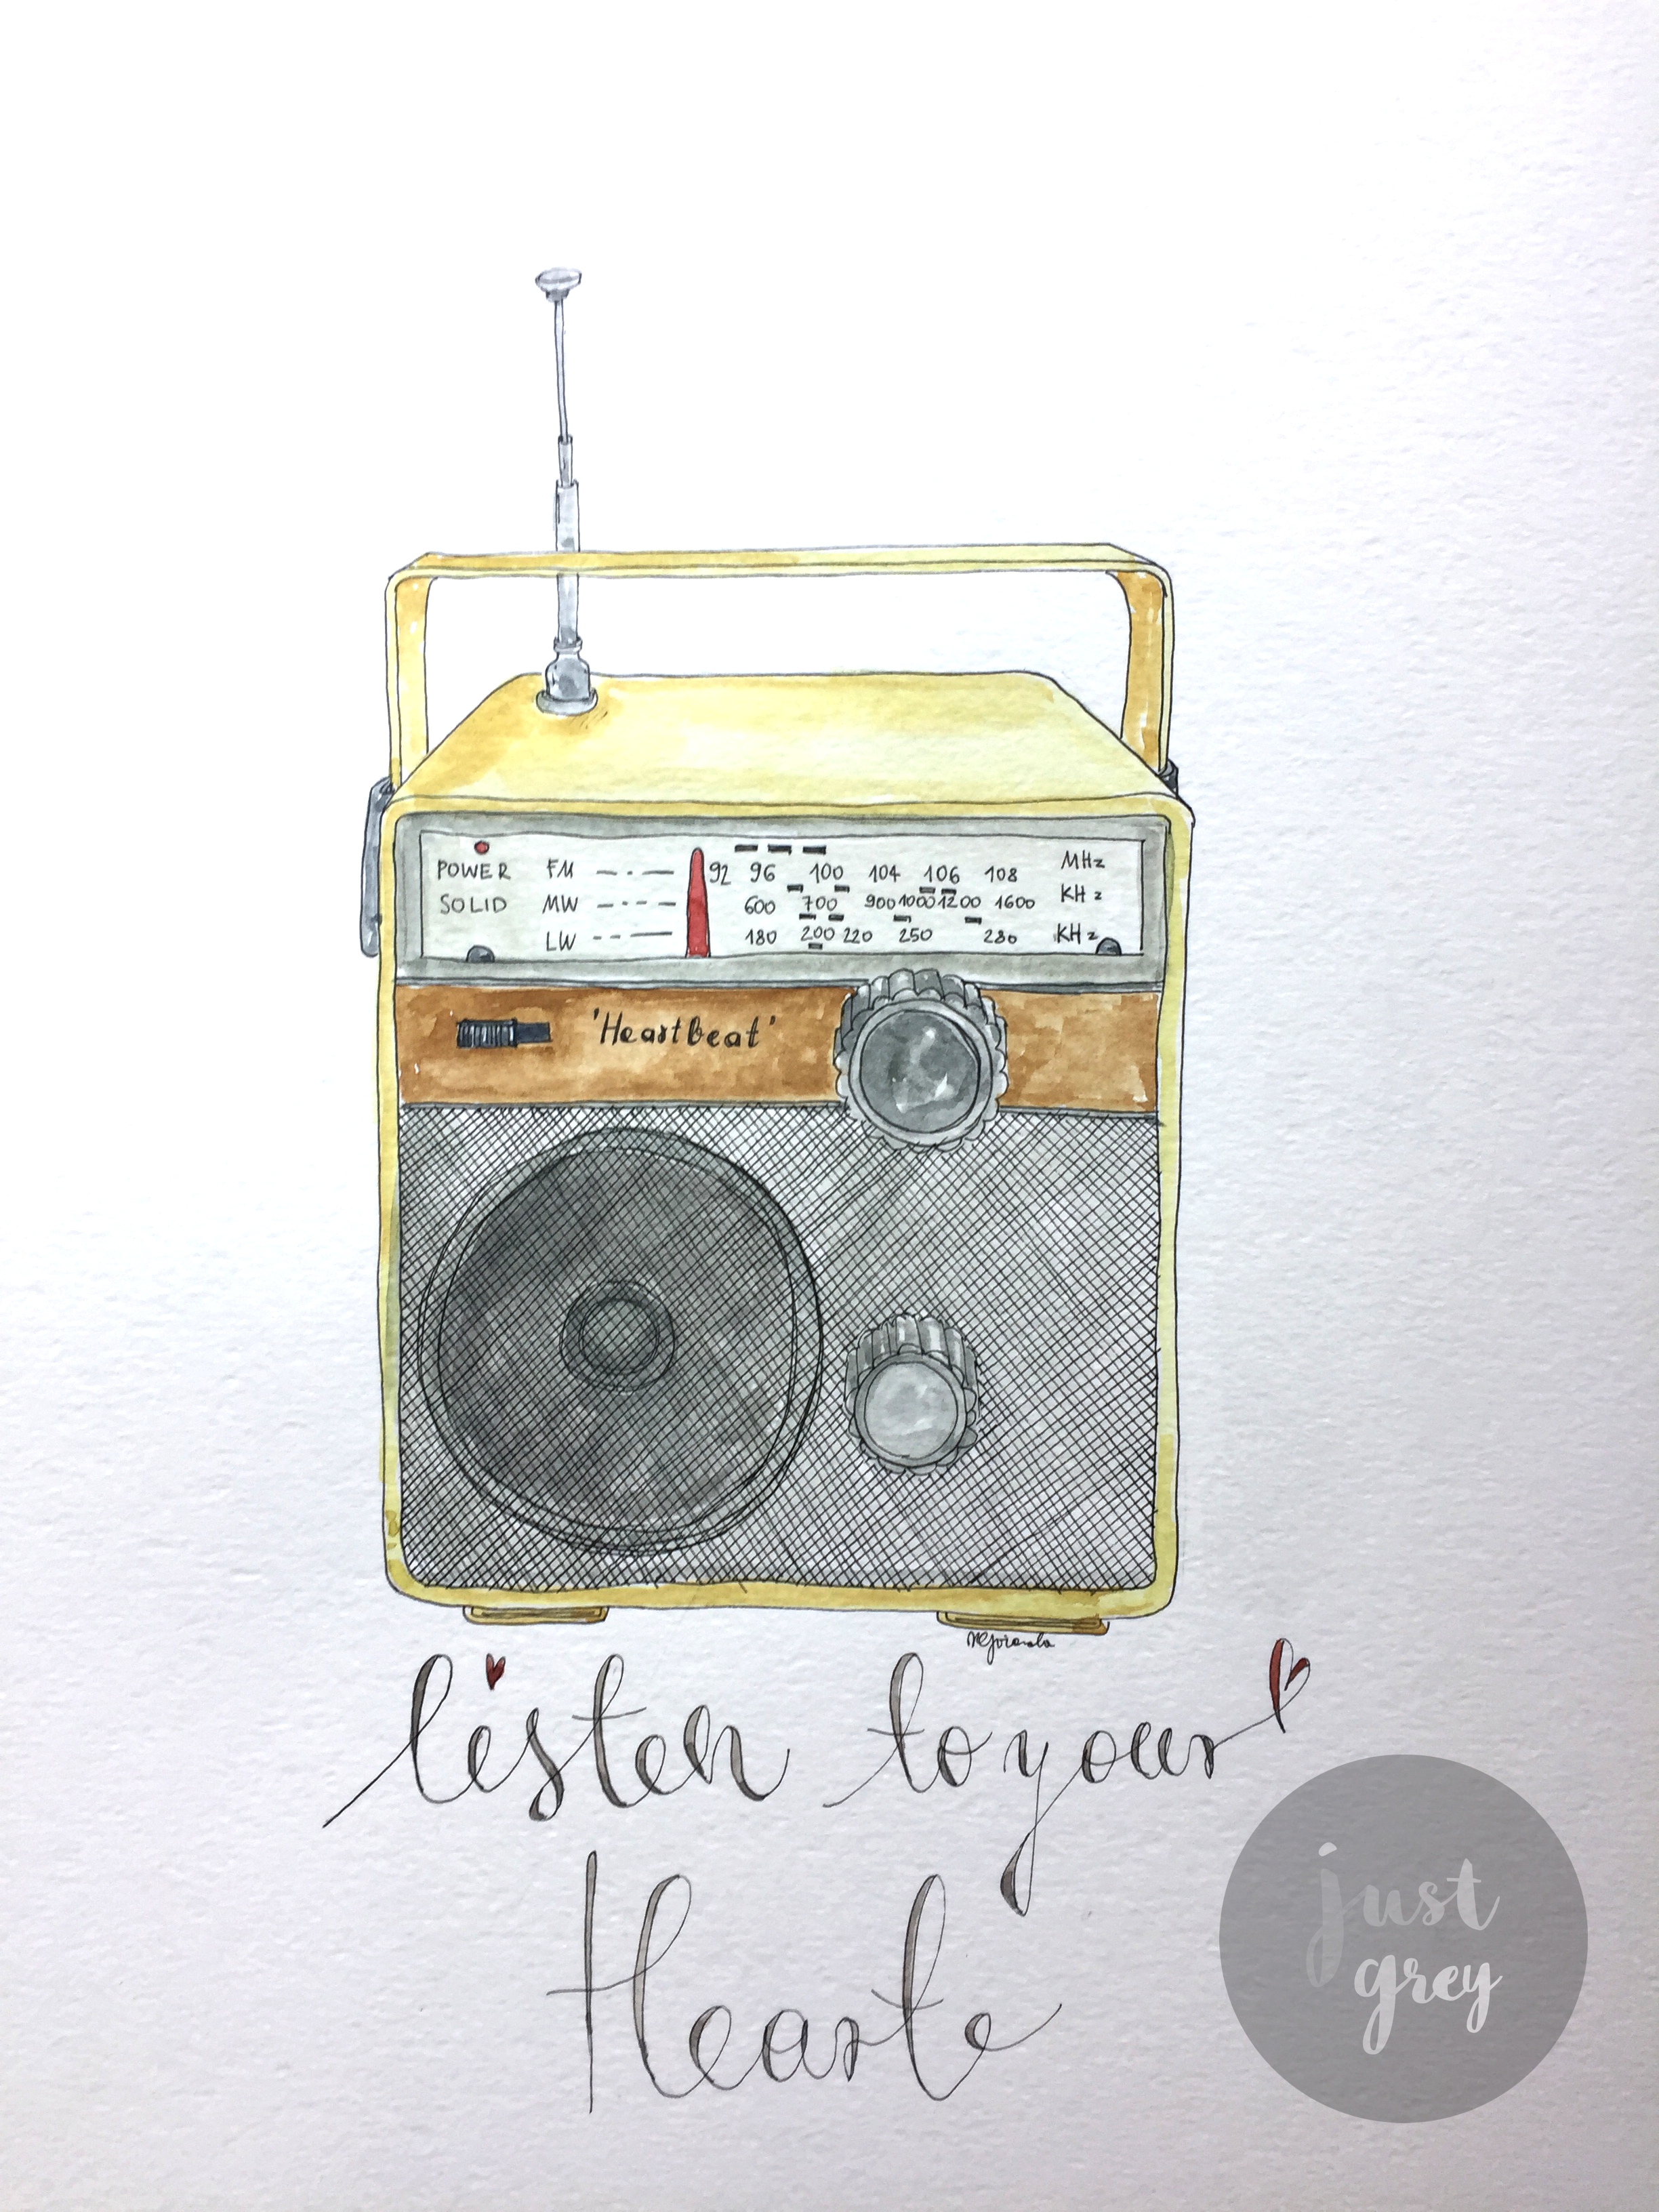 POWER FM 92 96 100 104 106 108 MHz
SOLID MW 600 700 900 1000 1200 1600 KHz
LW 180 200 220 250 280 KHz
'Heartbeat'
listen to your
Heart
just
grey